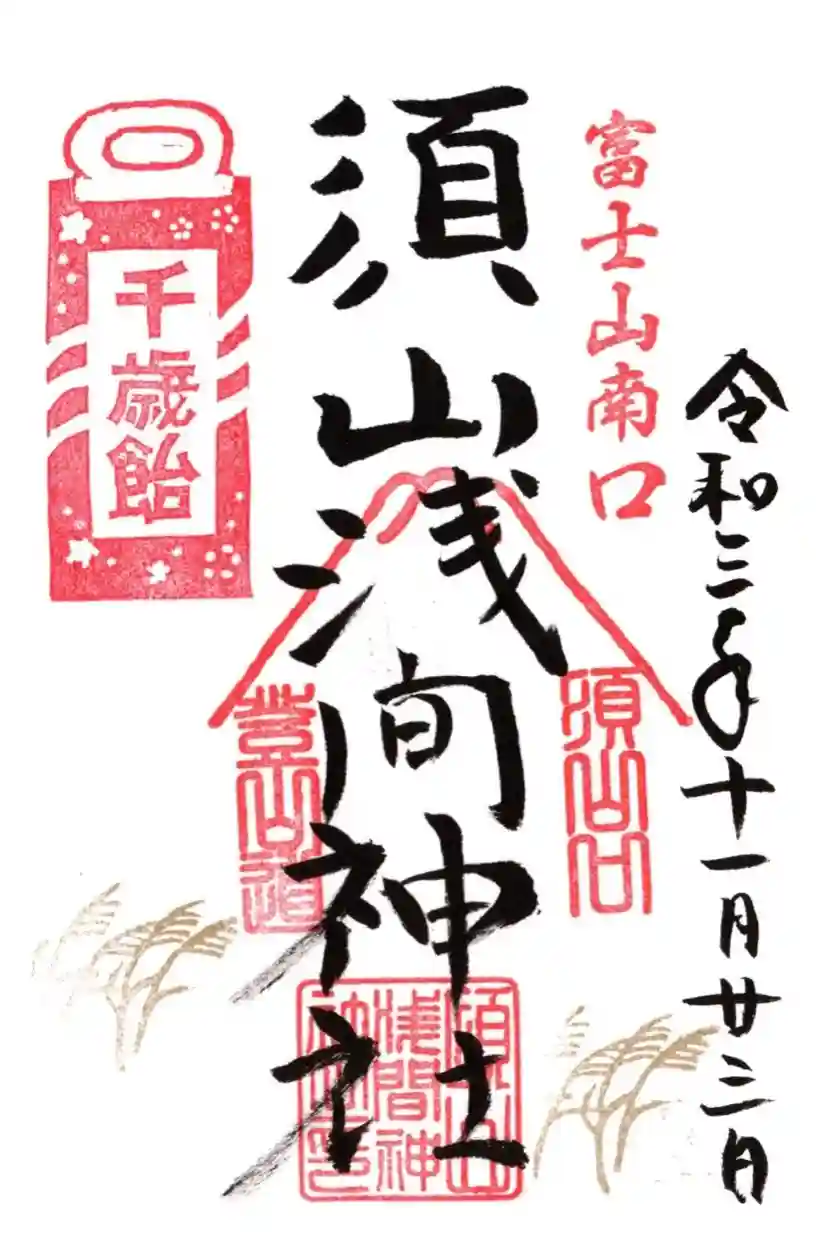 令和三年十一月廿三日
富士山南口
須山口
須山浅间神社
須山
浅間神
社之印
登山道
千歳飴